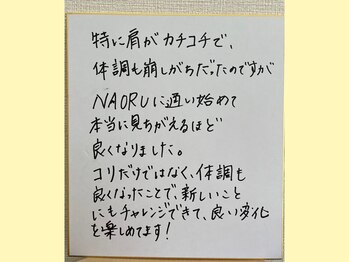 特に肩がカチコチで、
体調も崩しがちだったのですが
NAORUに通い始めて
本当に見ちがえるほど
良くなりました。
コリだけではなく、体調も
良くなったことで、新しいこと
にもチャレンジできて、良い変化
を楽しめてます!